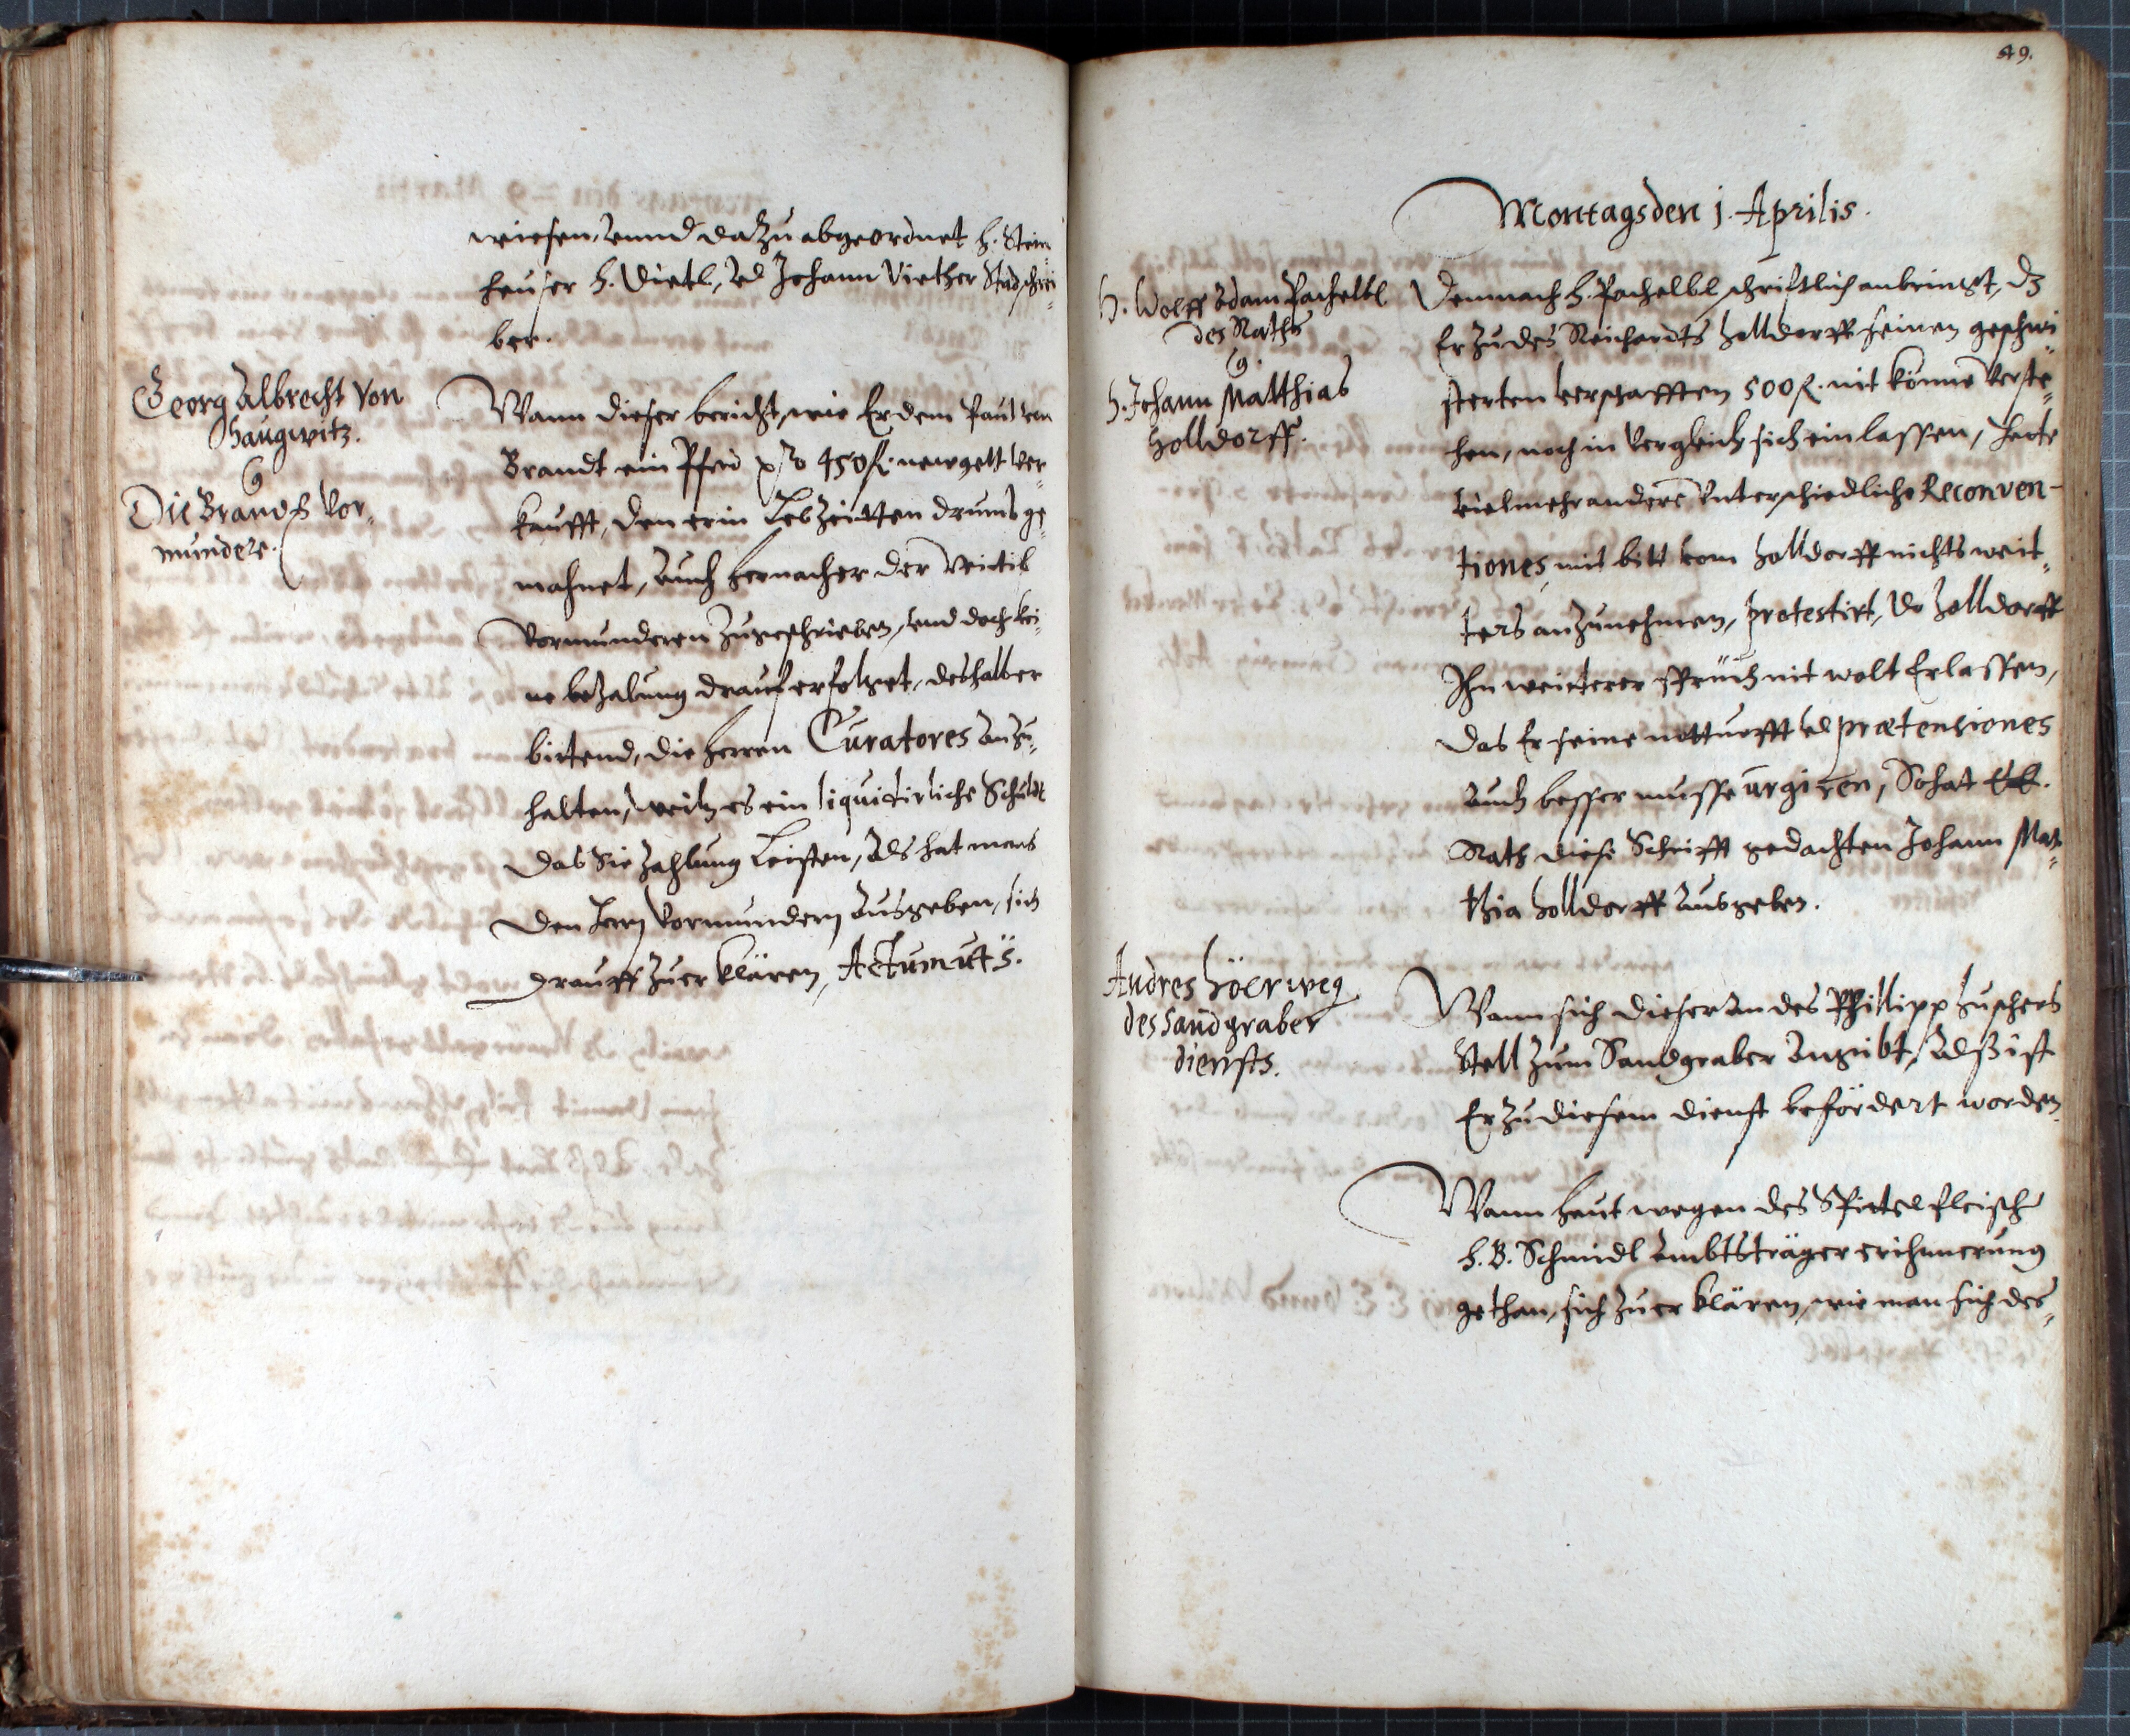 wiesen, vnnd dazu abgeordnet H. Stein„
heuser H. Dietl, vnd Johann Viether Stadschrei„
ber.
Georg Albrecht Von
Haugwitz.
Die Brand Vor„
mundere.
Wann dieser bericht, wie Er dem Paul von
Brandt ein Pferd pro 450 fl. new gelt ver„
kaufft, den er in Lebzeitten drumb ge„
mahnet, Auch hernacher der Wittib
Vormunderen zugeschrieben, vnd doch kei„
ne bezalung drauf erfolget, deshalber
bittend, die herren Curatores anzu„
halten, weil es ein liquidirliche Schuldt
das Sie zahlung Leisten, Als hat mans
den hern Vormundern Ausgeben, sich
drauff zuerklären, Actum ut s.
49.
Montags den 1. Aprilis.
H. Wolff Adam Pachelbl
des Raths
H. Johann Matthias
Holldorff.
Demnach H. Pachelbl schriftlich anbringt, dz
Er zu des Reichardts Holldorff seinen geschwi„
sterten verschafften 500 fl. nit könne verste„
hen, noch in Vergleich sich einlassen, habe
vielmehr andere Vnterschiedliche Reconven-
tiones, mit bitt vom Holldorff nichts weit„
ters anzunehmen, protestirt, do Holldorff
Ihn weitterer sprüch nit wolt Erlassen,
das Er seine notturfft vnd prætensiones
auch besser musse urgiren, So hat
Rath diese Schrifft gedachten Johann Mat„
thia Holldorff Ausgeben.
Andres Höerweg
des Sandgraber
diensts.
Wann sich dieser an des Phillipp
Stell zum Sandgraber Angibt, Alß ist
Er zu diesem dienst befördert worden
Wann heut wegen des Spittelfleisch
H. B. Schmidl Ambtsträger erihnnerung
gethan, sich zuerklären, wie man sich des„